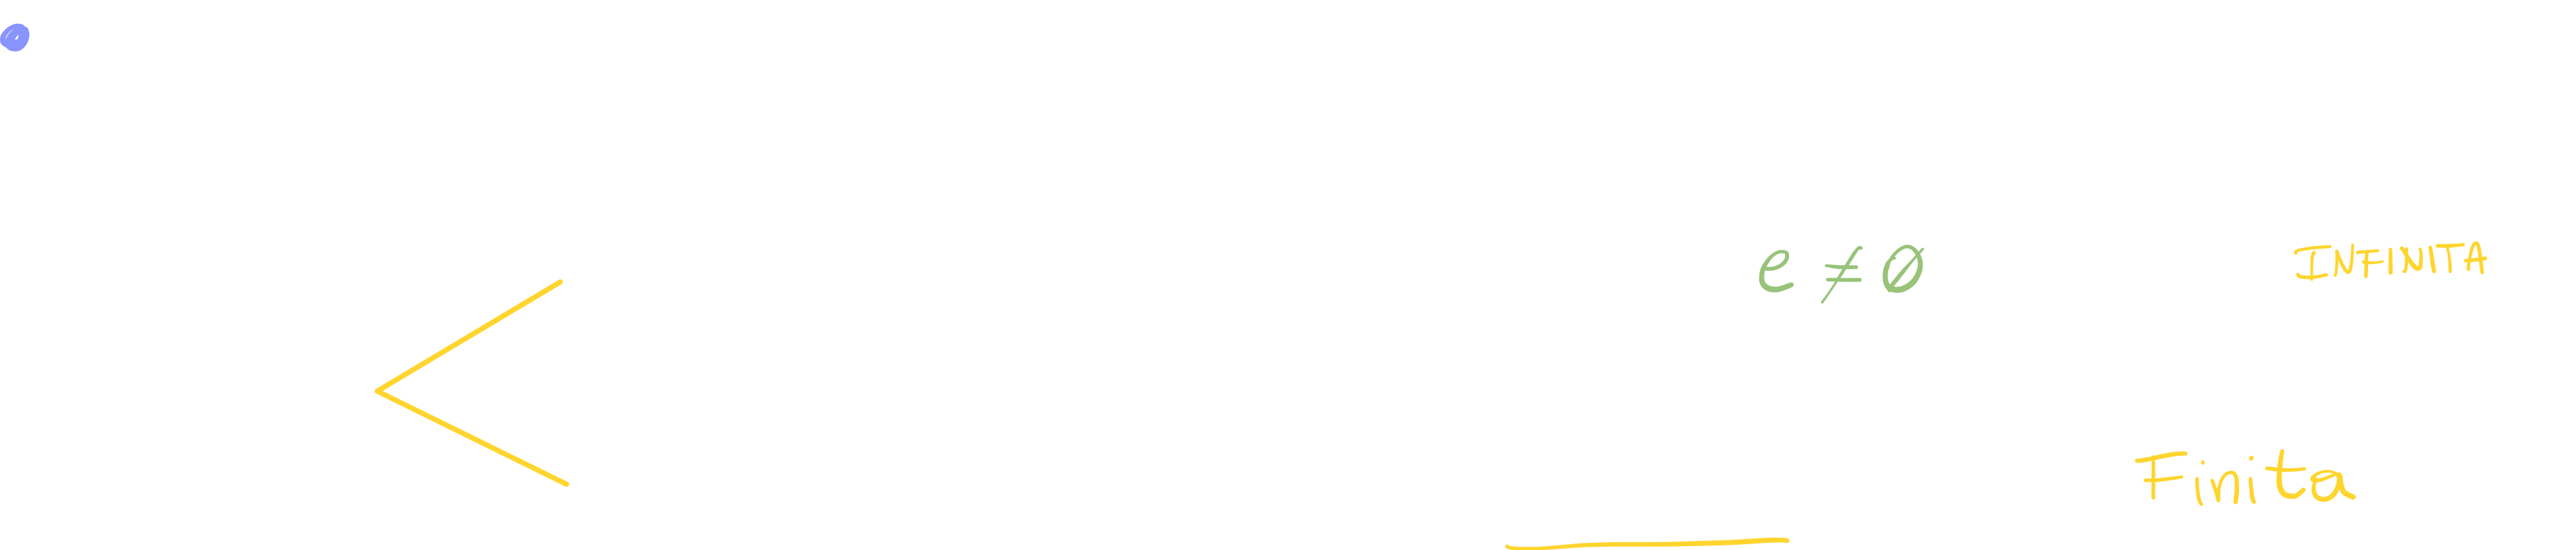 e ≠ Ø INFINITA
Finita